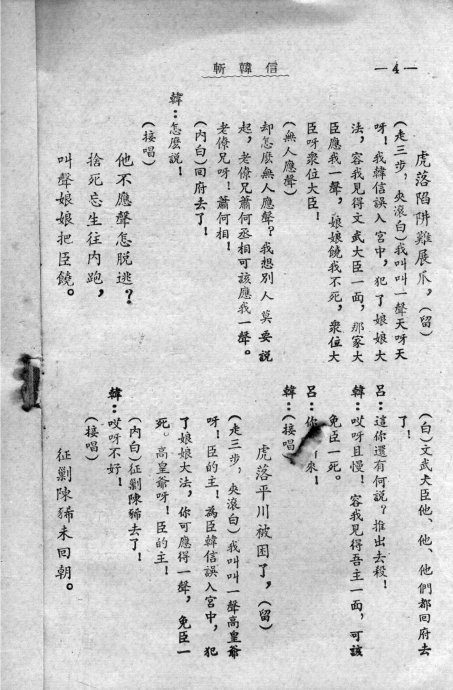 斬韓信
—4—
虎落陷阱難展爪，(留)
(走三步，夾滾白)我叫叫一聲天呀天
呀！我韓信誤入宮中，犯了娘娘大
法，容我見得文武大臣一面，那家大
臣應我一聲，娘娘饒我不死，衆位大
臣呀衆位大臣！
(無人應聲)
却怎麽無人應聲？我想別人莫要說
起，老僚兄蕭何丞相可該應我一聲。
老僚兄呀！蕭何相！
(內白)回府去了！
韓：怎麽說！
(接唱)
他不應聲怎脫逃？
捨死忘生往內跑，
叫聲娘娘把臣饒。
(白)文武大臣他、他、他們都回府去
了！
呂：這你還有何說？推出去殺！
韓：哎呀且慢！容我見得吾主一面，可該
免臣一死。
呂：你來！
韓：(接唱)
虎落平川被困了，(留)
(走三步，夾滾白)我叫叫一聲高皇爺
呀！臣的主！爲臣韓信誤入宮中，犯
了娘娘大法，你可應得一聲，免臣一
死。高皇爺呀！臣的主！
(內白)征剿陳豨去了！
韓：哎呀不好！
(接唱)
征剿陳豨未回朝。